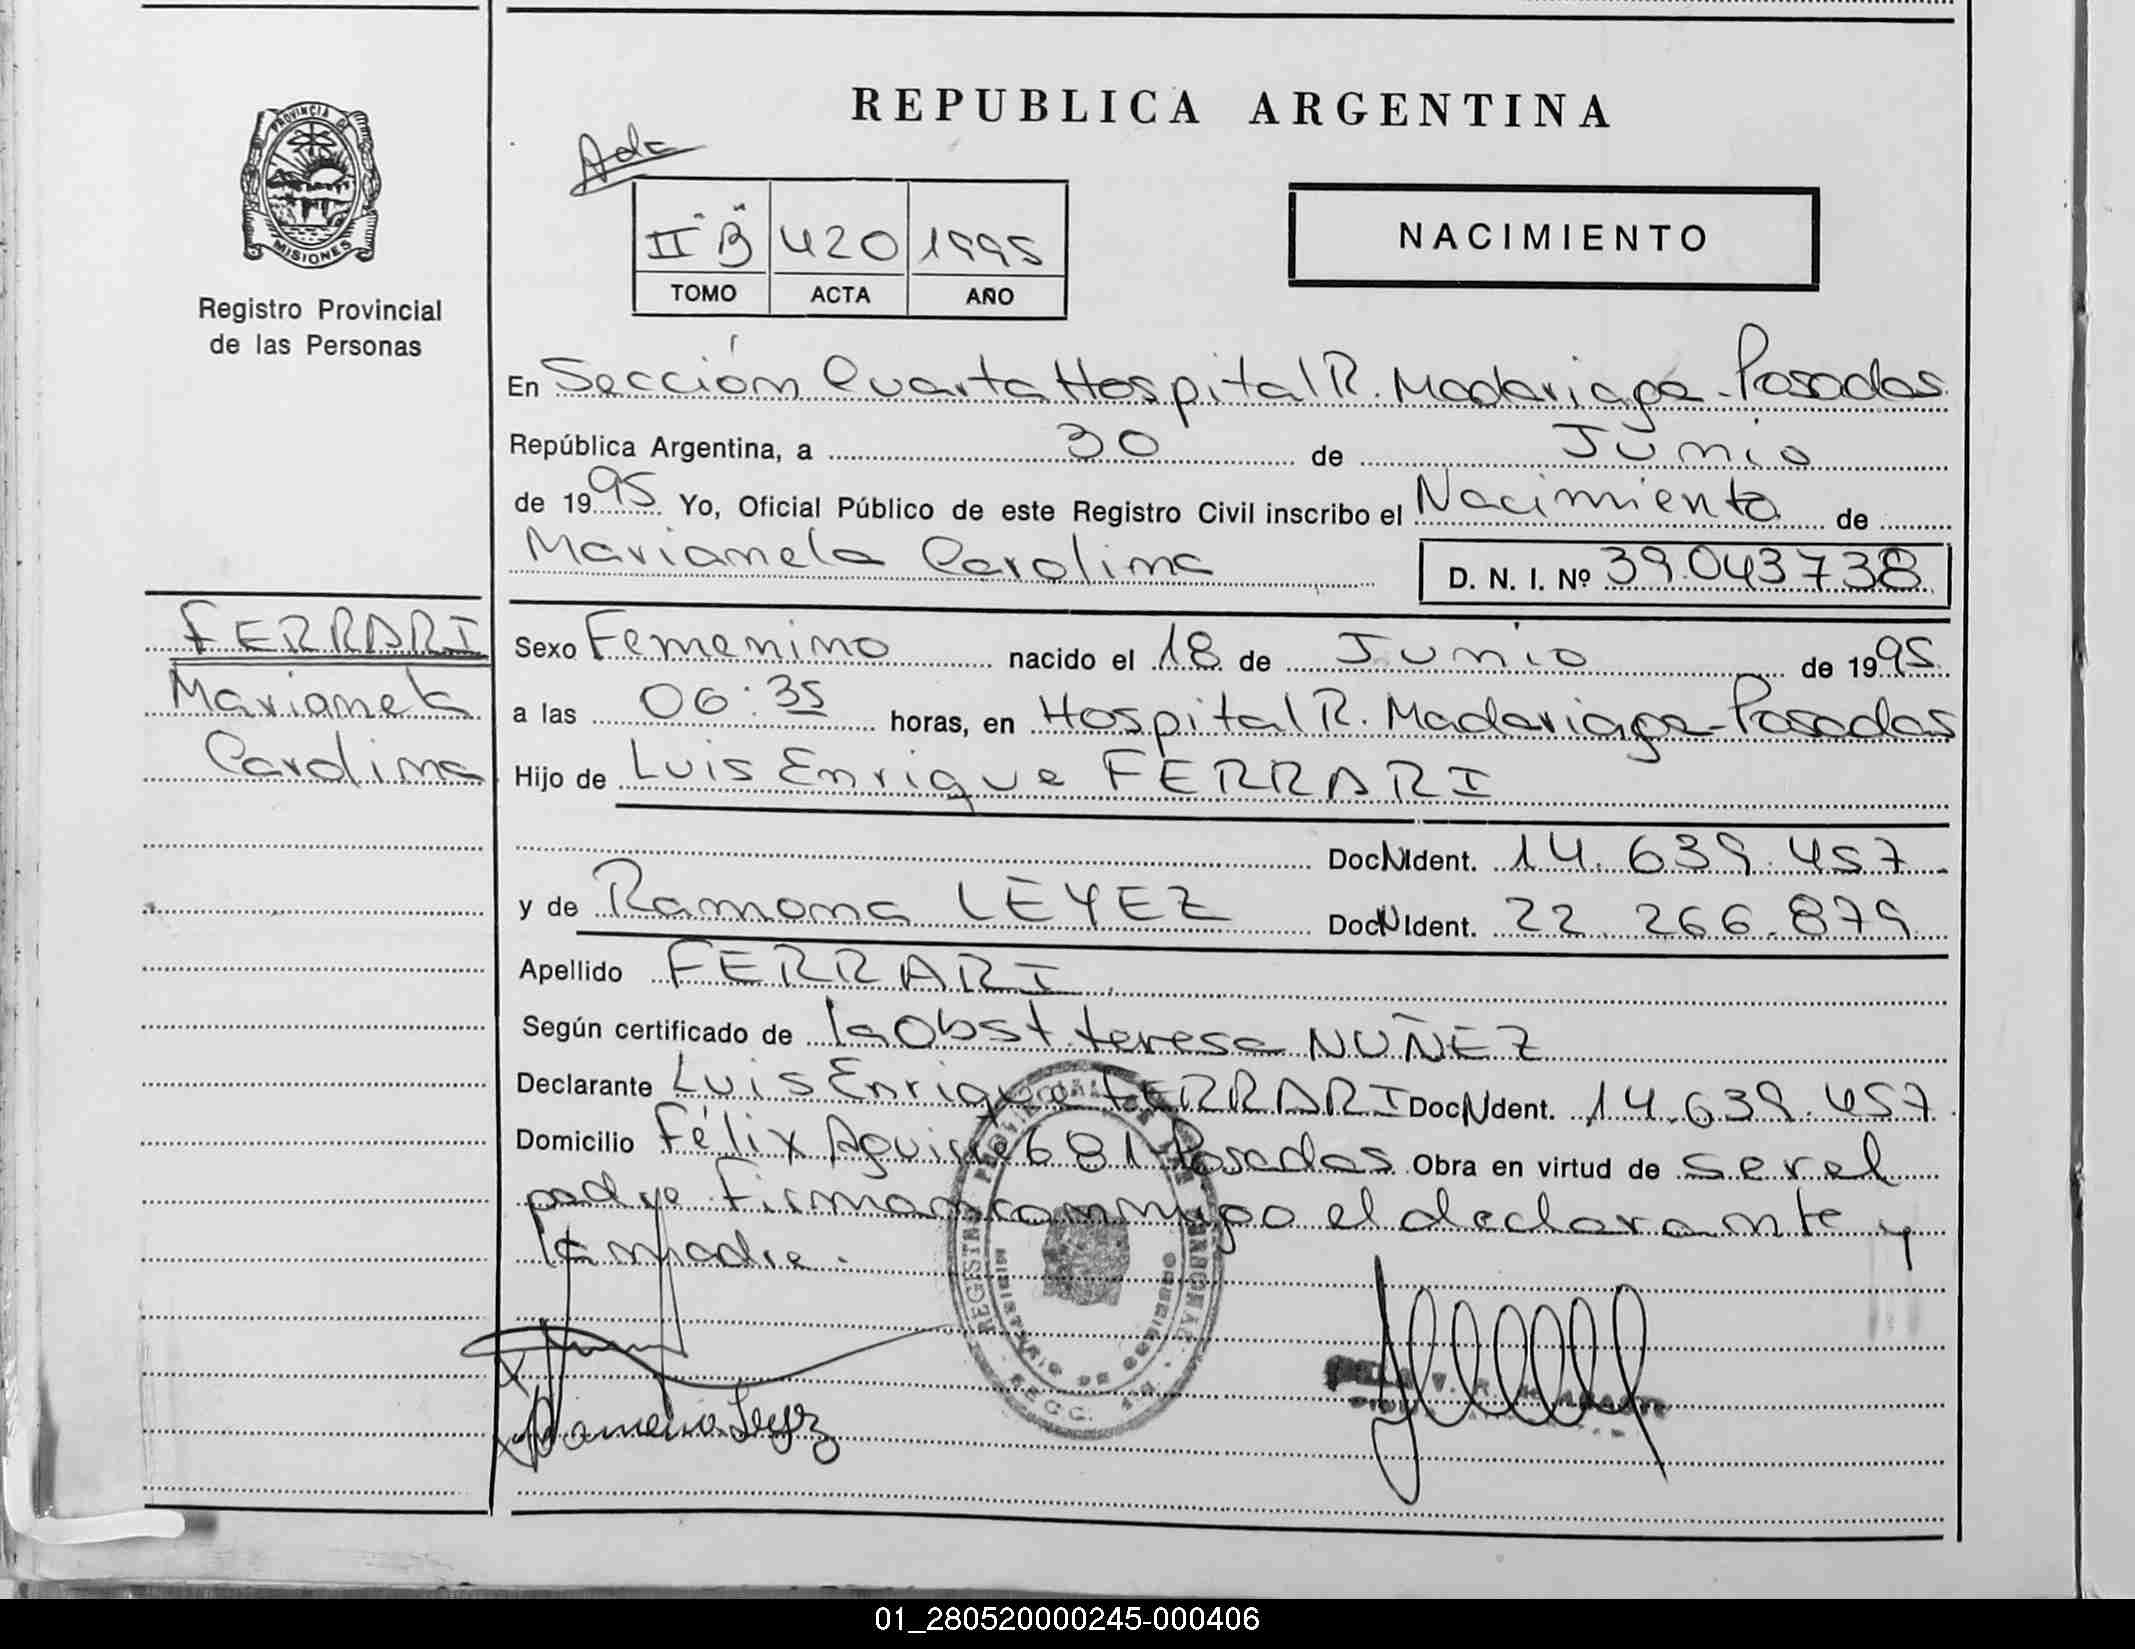 REPUBLICA ARGENTINA
Ada
PROVINCIA DE
MISIONES
Registro Provincial
de las Personas
II "B" 420 1995
TOMO ACTA AÑO
NACIMIENTO
En Sección Cuarta Hospital R. Madariaga - Posadas
República Argentina, a 30 de Junio
de 1995 Yo, Oficial Público de este Registro Civil inscribo el Nacimiento de
Marianela Carolina D. N. I. Nº 39.043738
FERRARI
Marianela
Carolina
Sexo Femenino nacido el 18 de Junio de 1995
a las 06:35 horas, en Hospital R. Madariaga - Posadas
Hijo de Luis Enrique FERRARI
Doc N Ident. 14.639.457
y de Ramona LEYEZ Doc N Ident. 22.266.879
Apellido FERRARI
Según certificado de la Obst teresa NUÑEZ
Declarante Luis Enrique FERRARI Doc N Ident. 14.639.457
Domicilio Félix Aguirre 681 Posadas Obra en virtud de ser el
padre Firman conmigo el declarante y
la madre.
REGISTRO PROVINCIAL DE LAS PERSONAS
MINISTERIO DE GOBIERNO
Leyez
01_280520000245-000406